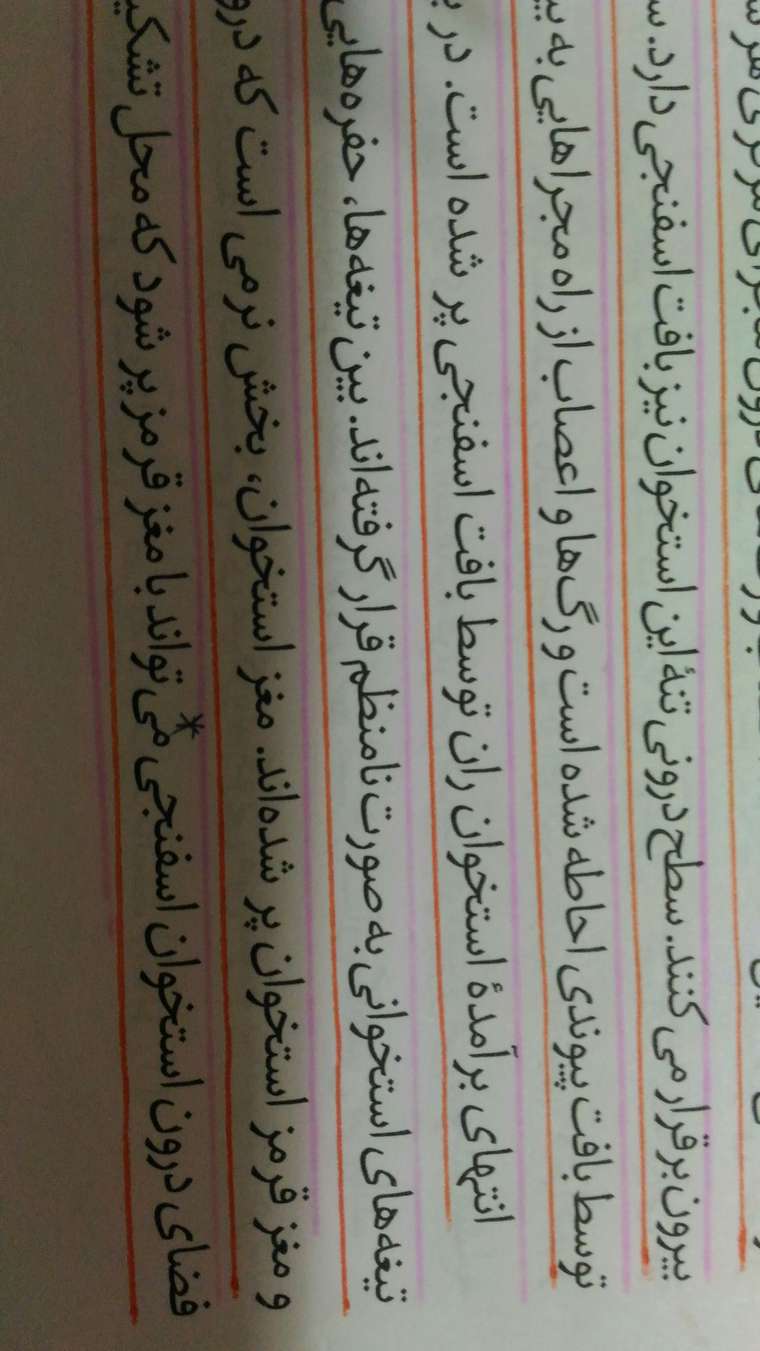 درون مجرای مرکزی هر
بیرون برقرار می‌کنند. سطح درونی تنهٔ این استخوان نیز بافت اسفنجی دارد.
توسط بافت پیوندی احاطه شده است و رگ‌ها و اعصاب از راه مجراهایی به
انتهای برآمدهٔ استخوان ران توسط بافت اسفنجی پر شده است. در
تیغه‌های استخوانی به صورت نامنظم قرار گرفته‌اند. بین تیغه‌ها، حفره‌هایی
و مغز قرمز استخوان پر شده‌اند. مغز استخوان، بخش نرمی است که
فضای درون استخوان اسفنجی *می‌تواند با مغز قرمز پر شود که محل